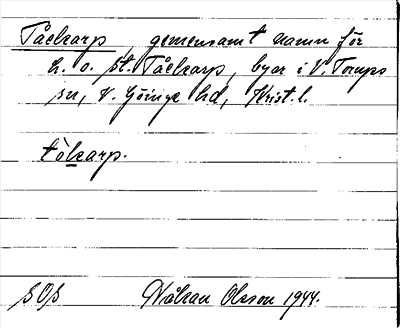 Tåckarp, gemensamt namn för
L. o. St. Tåckarp, byar i V. Torups
sn, V. Göinge hd, Krist. l.
tòkarp.
SOS Håkan Olsson 1944.